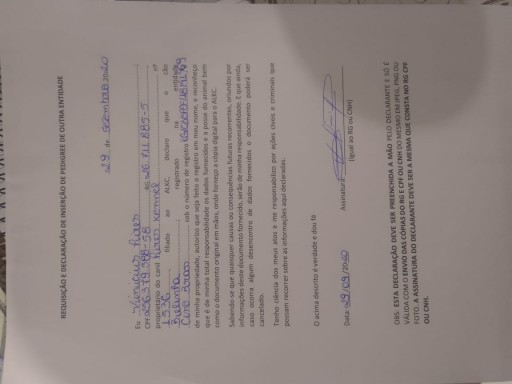 REQUISIÇÃO E DECLARAÇÃO DE INSERÇÃO DE PEDIGREE DE OUTRA ENTIDADE
29 de setembro 2020
Eu, Vinicius
CPF RG
proprietário do canil nº
filiado ao ALKC, declaro que o cão
registrado na entidade
sob o número de registro
de minha propriedade, autorizo que seja feito o registro em meu nome, e reconheço
que é de minha total responsabilidade os dados fornecidos e a posse do animal bem
como o documento original em mãos, onde forneço a cópia digital para o ALKC.
Sabendo-se que quaisquer causas ou consequências futuras recorrentes, oriundos por
informações deste documento fornecido, serão de minha responsabilidade. E que ainda,
caso ocorra algum desencontro de dados fornecidos o documento poderá ser
cancelado.
Tenho ciência dos meus atos e me responsabilizo por ações cíveis e criminais que
possam recorrer sobre as informações aqui declaradas.
O acima descrito é verdade e dou fé
Data: 29/09/2020 Assinatura
(Igual ao RG ou CNH)
OBS: ESTA DECLARAÇÃO DEVE SER PREENCHIDA A MÃO PELO DECLARANTE E SÓ É
VÁLIDA COM O ENVIO DAS CÓPIAS DO RG E CPF OU CNH DO MESMO EM JPEG, PNG OU
FOTO. A ASSINATURA DO DECLARANTE DEVE SER A MESMA QUE CONSTA NO RG CPF
OU CNH.